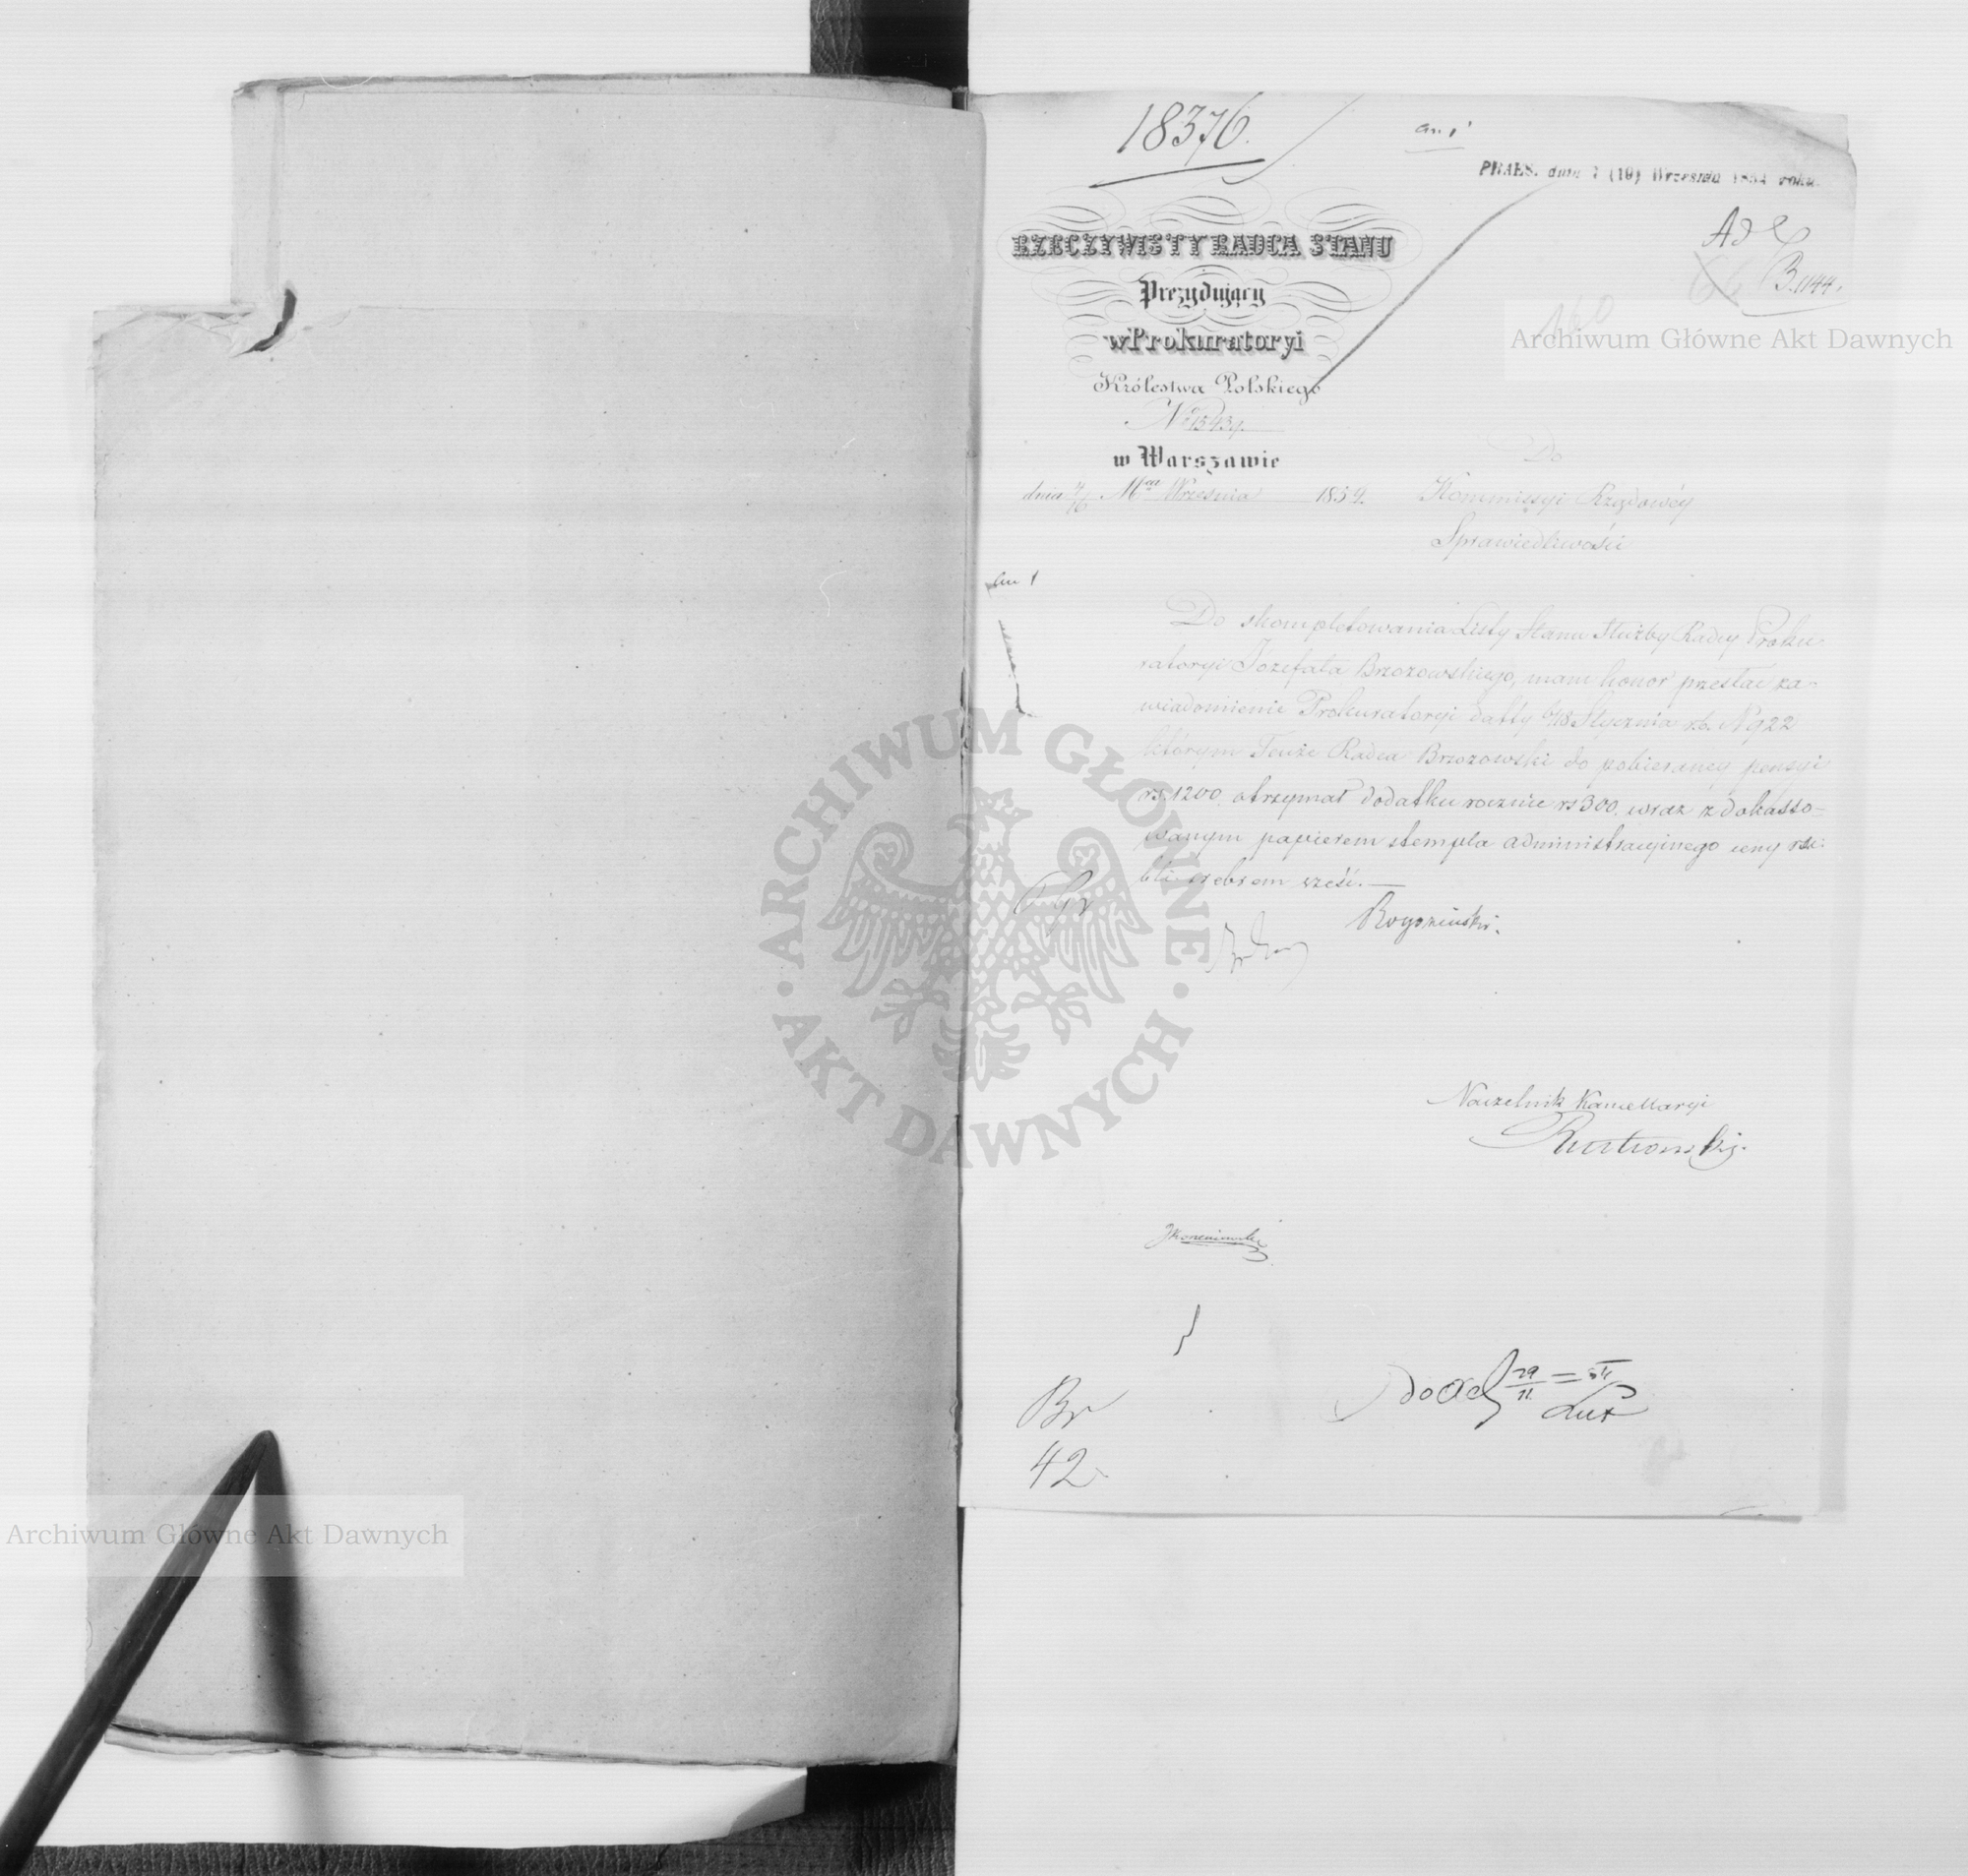 18376.
an. 1
PRAES. dnia 7 (19) Września 1854 roku.
Ad
B. 1144.
RZECZYWISTY RADCA STANU
Prezydujący
w Prokuratoryi
Królestwa Polskiego
w Warszawie
dnia 4/16 Mca Września 1854.
Do
Kommissyi Rządowéy
Sprawiedliwości
an 1
Do skompletowania Listy Stanu Służby Radcy Proku
ratoryi Jozefata Brzozowskiego, mam honor przesłać za-
wiadomienie Prokuratoryi datty 6/18 Stycznia r.b. N 922
którym Tenże Radca Brzozowski do pobieranéy pensyi
rs. 1200. otrzymał dodatku rocznie rs 300. wraz z dokasso-
wanym papierem stempla administracyinego ceny ru-
bli srebrem sześć. —
Naczelnik Kancellaryi
Br
42
Archiwum Główne Akt Dawnych
ARCHIWUM GŁÓWNE AKT DAWNYCH
Archiwum Główne Akt Dawnych